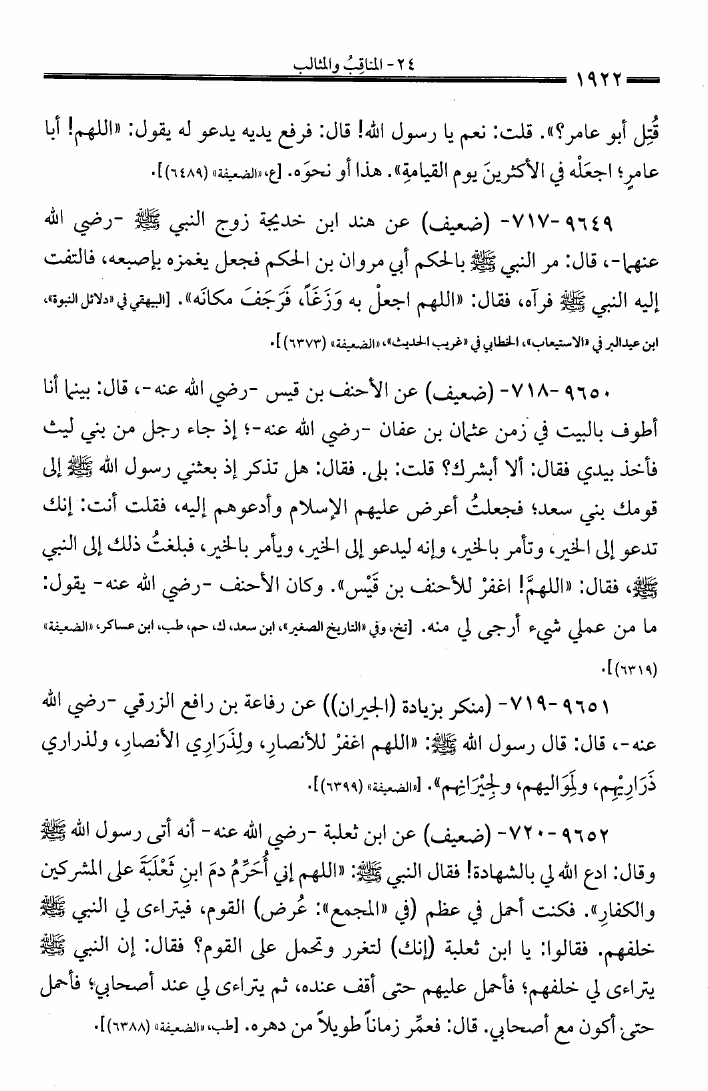 ٢٤- المناقِبُ والمثالب
١٩٢٢
قُتِل أبو عامر؟». قلت: نعم يا رسول الله! قال: فرفع يديه يدعو له يقول: «اللهم! أبا
عامرٍ؛ اجعَلْه في الأكثرينَ يوم القيامةِ». هذا أو نحوَه. [ع، «الضعيفة» (٦٤٨٩)].
٩٦٤٩-٧١٧- (ضعيف) عن هند ابن خديجة زوج النبي ﷺ -رضي الله
عنهما-، قال: مر النبي ﷺ بالحكم أبي مروان بن الحكم فجعل يغمزه بإصبعه، فالتفت
إليه النبي ﷺ فرآه، فقال: «اللهم اجعل به وَزَغَاً، فَرَجَفَ مكانَه». [البيهقي في «دلائل النبوة»،
ابن عبدالبر في «الاستيعاب»، الخطابي في «غريب الحديث»، «الضعيفة» (٦٣٧٣)].
٩٦٥٠-٧١٨- (ضعيف) عن الأحنف بن قيس -رضي الله عنه-، قال: بينما أنا
أطوف بالبيت في زمن عثمان بن عفان -رضي الله عنه-؛ إذ جاء رجل من بني ليث
فأخذ بيدي فقال: ألا أبشرك؟ قلت: بلى. فقال: هل تذكر إذ بعثني رسول الله ﷺ إلى
قومك بني سعد؛ فجعلتُ أعرض عليهم الإسلام وأدعوهم إليه، فقلت أنت: إنك
تدعو إلى الخير، وتأمر بالخير، وإنه ليدعو إلى الخير، ويأمر بالخير، فبلغتُ ذلك إلى النبي
ﷺ، فقال: «اللهمَّ! اغفرْ للأحنف بن قَيْس». وكان الأحنف -رضي الله عنه- يقول:
ما من عملي شيء أرجى لي منه. [تخ، وفي «التاريخ الصغير»، ابن سعد، ك، حم، طب، ابن عساكر، «الضعيفة»
(٦٣١٩)].
٩٦٥١-٧١٩- (منكر بزيادة (الجيران)) عن رفاعة بن رافع الزرقي -رضي الله
عنه-، قال: قال رسول الله ﷺ: «اللهم اغفرْ للأنصارِ، ولِذَرَارِي الأنصارِ، ولذراري
ذَرَارِيْهِم، ولمَوَاليهم، ولجِيْرَانِهم». [«الضعيفة» (٦٣٩٩)].
٩٦٥٢-٧٢٠- (ضعيف) عن ابن ثعلبة -رضي الله عنه- أنه أتى رسول الله ﷺ
وقال: ادع الله لي بالشهادة! فقال النبي ﷺ: «اللهم إني أُحَرِّمُ دمَ ابنِ ثَعْلَبَةَ على المشركين
والكفارِ». فكنت أحمل في عظم (في «المجمع»: عُرض) القوم، فيتراءى لي النبي ﷺ
خلفهم. فقالوا: يا ابن ثعلبة (إنك) لتغرر وتحمل على القوم؟ فقال: إن النبي ﷺ
يتراءى لي خلفهم؛ فأحمل عليهم حتى أقف عنده، ثم يتراءى لي عند أصحابي؛ فأحمل
حتى أكون مع أصحابي. قال: فعمِّر زماناً طويلاً من دهره. [طب، «الضعيفة» (٦٣٨٨)].